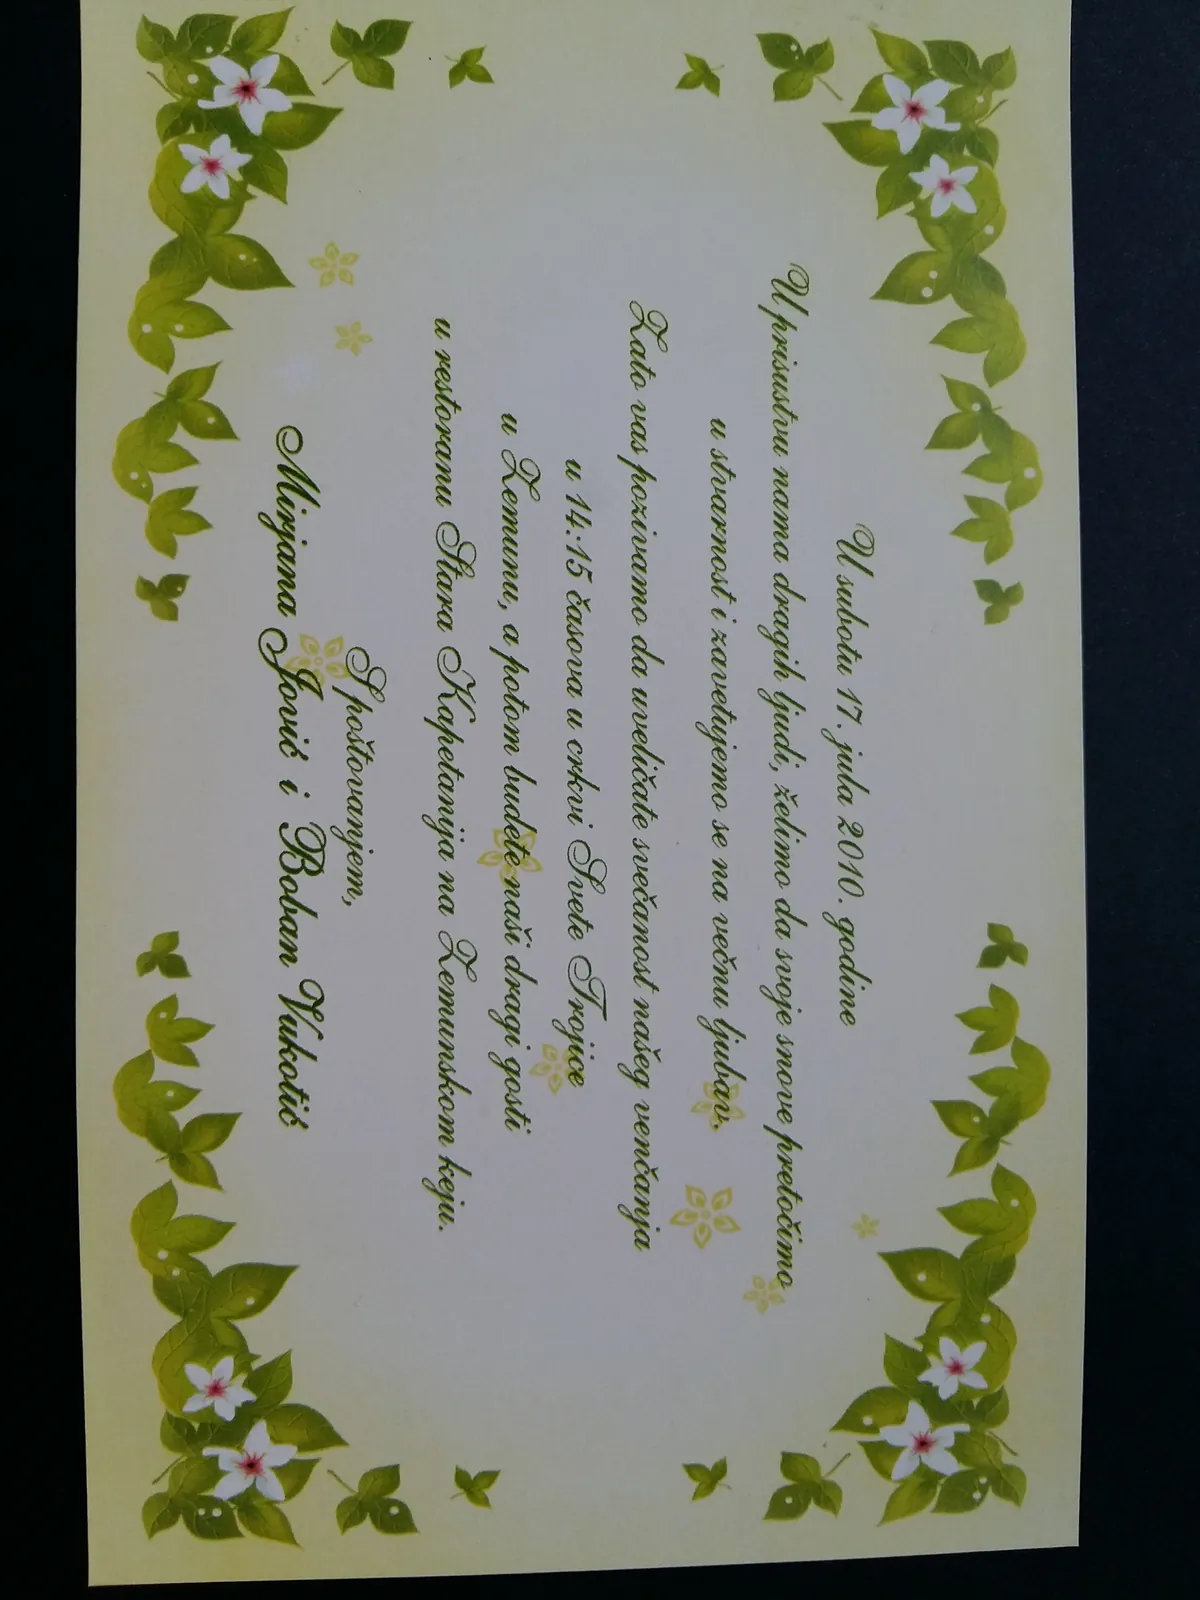 U subotu 17. jula 2010. godine
U prisustvu nama dragih ljudi, želimo da svoje snove pretočimo
u stvarnost i zavetujemo se na večnu ljubav.
Zato vas pozivamo da uveličate svečanost našeg venčanja
u 14:15 časova u crkvi Svete Trojice
u Zemunu, a potom budete naši dragi gosti
u restoranu Stara Kapetanija na Zemunskom keju.
S poštovanjem,
Mirjana Jović i Boban Vukotić